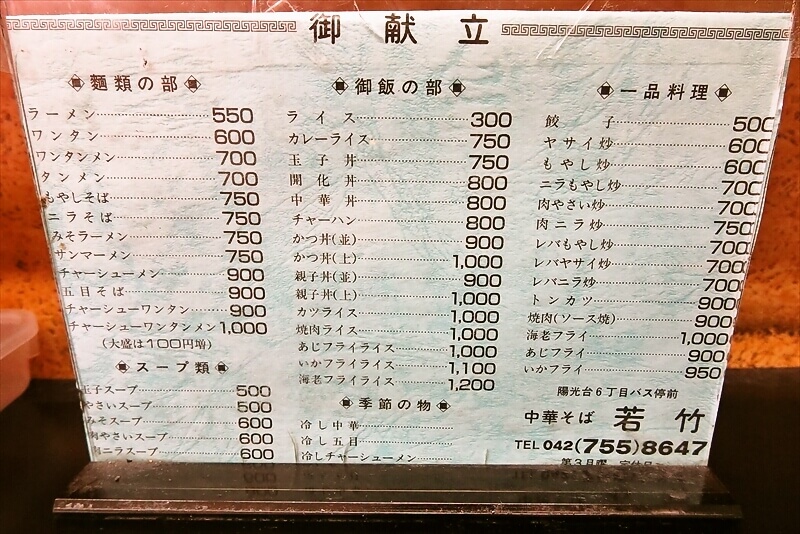 御献立
麵類の部
ラーメン 550
ワンタン 600
ワンタンメン 700
タンメン 700
もやしそば 750
ニラそば 750
みそラーメン 750
サンマーメン 750
チャーシューメン 900
五目そば 900
チャーシューワンタン 900
チャーシューワンタンメン 1,000
(大盛は100円増)
スープ類
玉子スープ 500
やさいスープ 500
みそスープ 600
肉やさいスープ 600
肉ニラスープ 600
御飯の部
ライス 300
カレーライス 750
玉子丼 750
開化丼 800
中華丼 800
チャーハン 800
かつ丼(並) 900
かつ丼(上) 1,000
親子丼(並) 900
親子丼(上) 1,000
カツライス 1,000
焼肉ライス 1,000
あじフライライス 1,000
いかフライライス 1,100
海老フライライス 1,200
季節の物
冷し中華
冷し五目
冷しチャーシューメン
一品料理
餃子 500
ヤサイ炒 600
もやし炒 600
ニラもやし炒 700
肉やさい炒 700
肉ニラ炒 750
レバもやし炒 700
レバヤサイ炒 700
レバニラ炒 700
トンカツ 900
焼肉(ソース焼) 900
海老フライ 1,000
あじフライ 900
いかフライ 950
陽光台6丁目バス停前
中華そば 若竹
TEL 042(755)8647
第3月曜 定休日